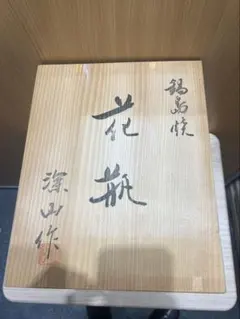 鍋島焼
花瓶
深山作